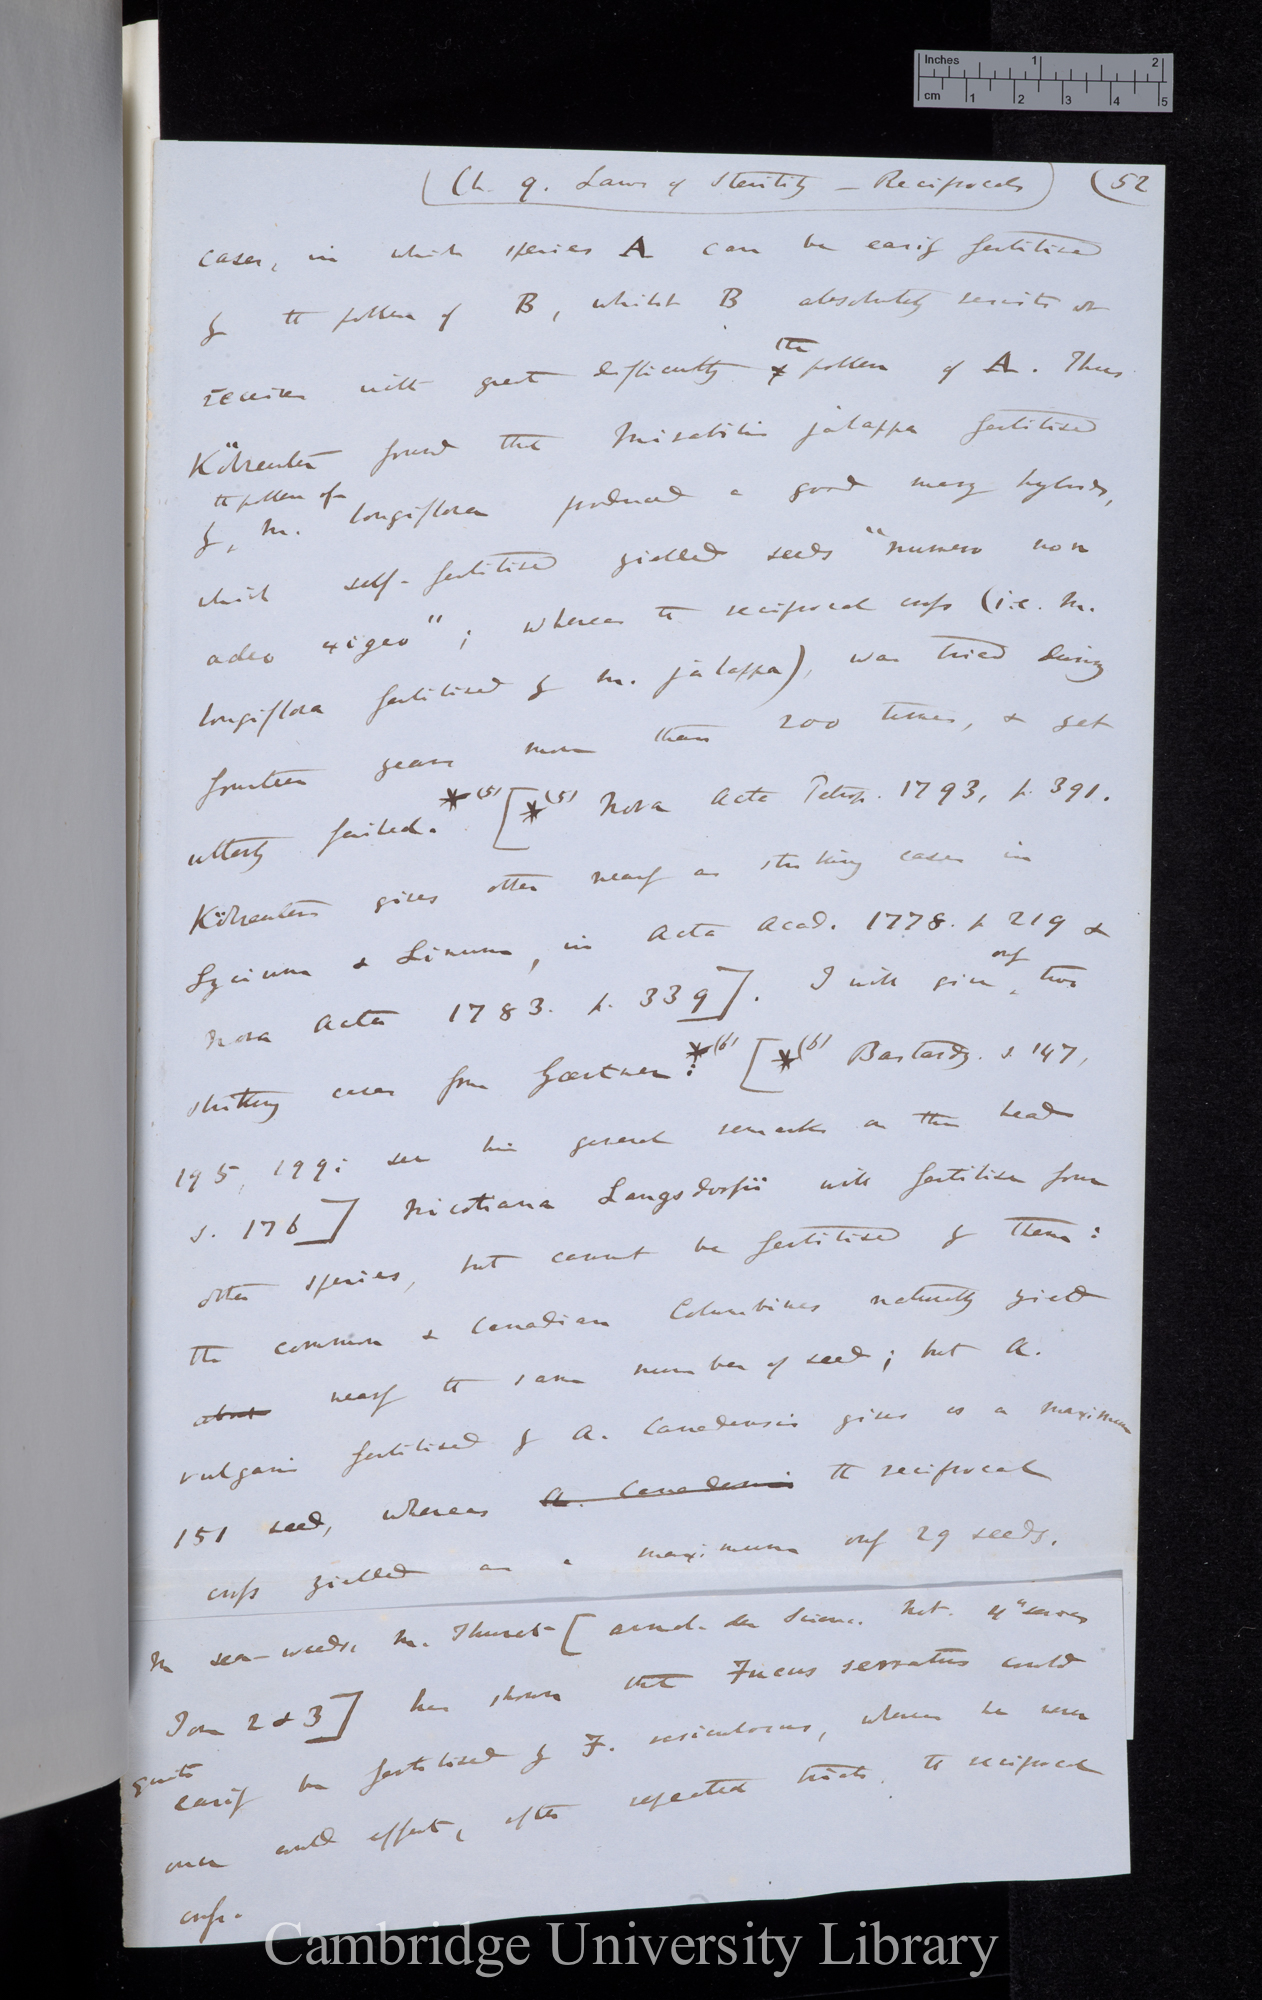 Inches 1 2
cm 1 2 3 4 5
(Ch. 9. Laws of Sterility – Reciprocals) (52
cases, in which species A can be easily fertilised
by the pollen of B, whilst B absolutely resists or
receives with great difficulty the pollen of A. Thus
Kölreuter found that Mirabilis jalappa fertilised
by, the pollen of M. longiflora produced a good many hybrids,
which self-fertilised yielded seeds "numero non
adeo exiguo"; whereas the reciprocal cross (i.e. M.
longiflora fertilised by M. jalappa), was tried during
fourteen years more than 200 times, & yet
utterly failed.*(5) [*(5) Nova Acta Petrop. 1793, p. 391.
Kölreuter gives other nearly as striking cases in
Lycium & Linum, in Acta Acad. 1778. p 219 &
Nova Acta 1783. p. 339]. I will give only two
striking cases from Gærtner:*(6) [*(6) Bastardz. s. 147,
195, 199: see his general remarks on this head
s. 176] Nicotiana Langsdorfii will fertilise four
other species, but cannot be fertilised by them:
the common & Canadian Columbines naturally yield
about nearly the same number of seed; but A.
vulgaris fertilised by A. Canadensis gives as a maximum
151 seed, whereas A. Canadensis the reciprocal
cross yielded as a maximum only 29 seeds.
In sea-weeds, M. Thuret [Annal. des Scienc. Nat. 4" series
Tom 2 & 3] has shown that Fucus serratus could
quite easily be fertilised by F. vesiculosus, whereas he never
once could effect, after repeated trials, the reciprocal
cross.
Cambridge University Library